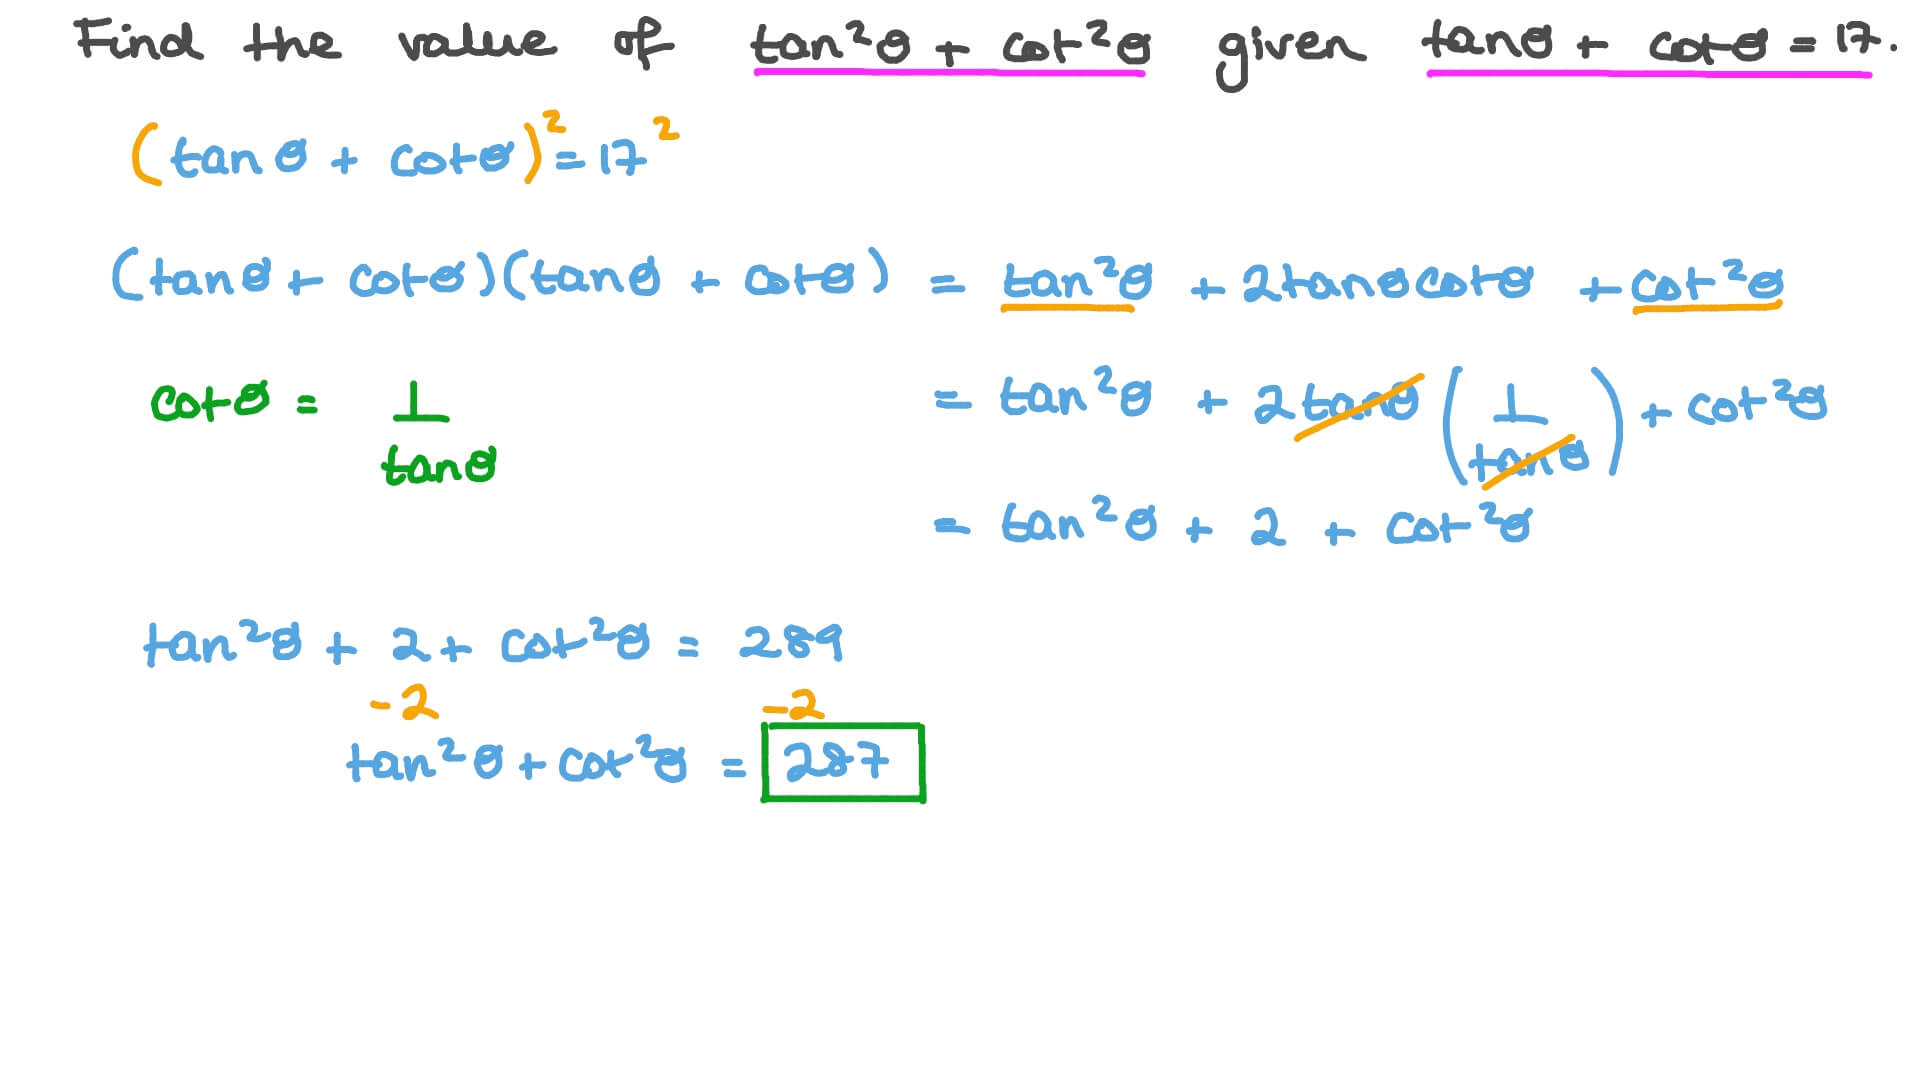 Find the value of tan²θ + cot²θ given tanθ + cotθ = 17.
(tanθ + cotθ)² = 17²
(tanθ + cotθ)(tanθ + cotθ) = tan²θ + 2tanθcotθ + cot²θ
cotθ = 1/tanθ
= tan²θ + 2tanθ(1/tanθ) + cot²θ
= tan²θ + 2 + cot²θ
tan²θ + 2 + cot²θ = 289
-2 -2
tan²θ + cot²θ = 287